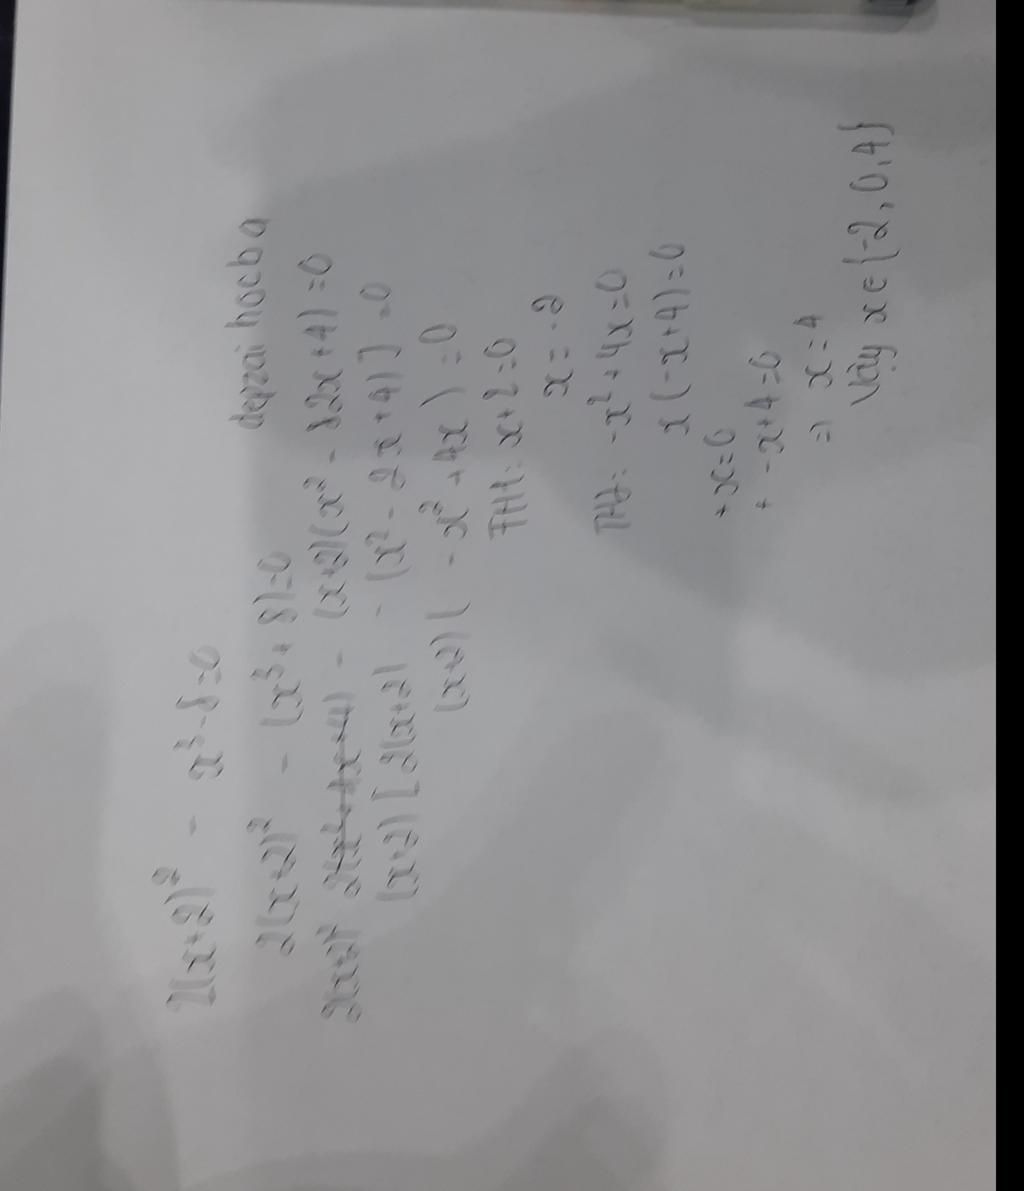 2(x+2)² - x³-8=0
depzai hocba
2(x+2)² - (x³+8)=0
2(x+2)² 2(x²+4x+4) - (x+2)(x² - 2x+4)=0
(x+2)[2(x+2) - (x² - 2x+4)] =0
(x+2)( - x² + 4x ) =0
TH1: x+2=0
x = -2
TH2: -x²+4x=0
x(-x+4)=0
+ x=0
+ -x+4=0
=> x=4
Vậy x∈{-2, 0, 4}